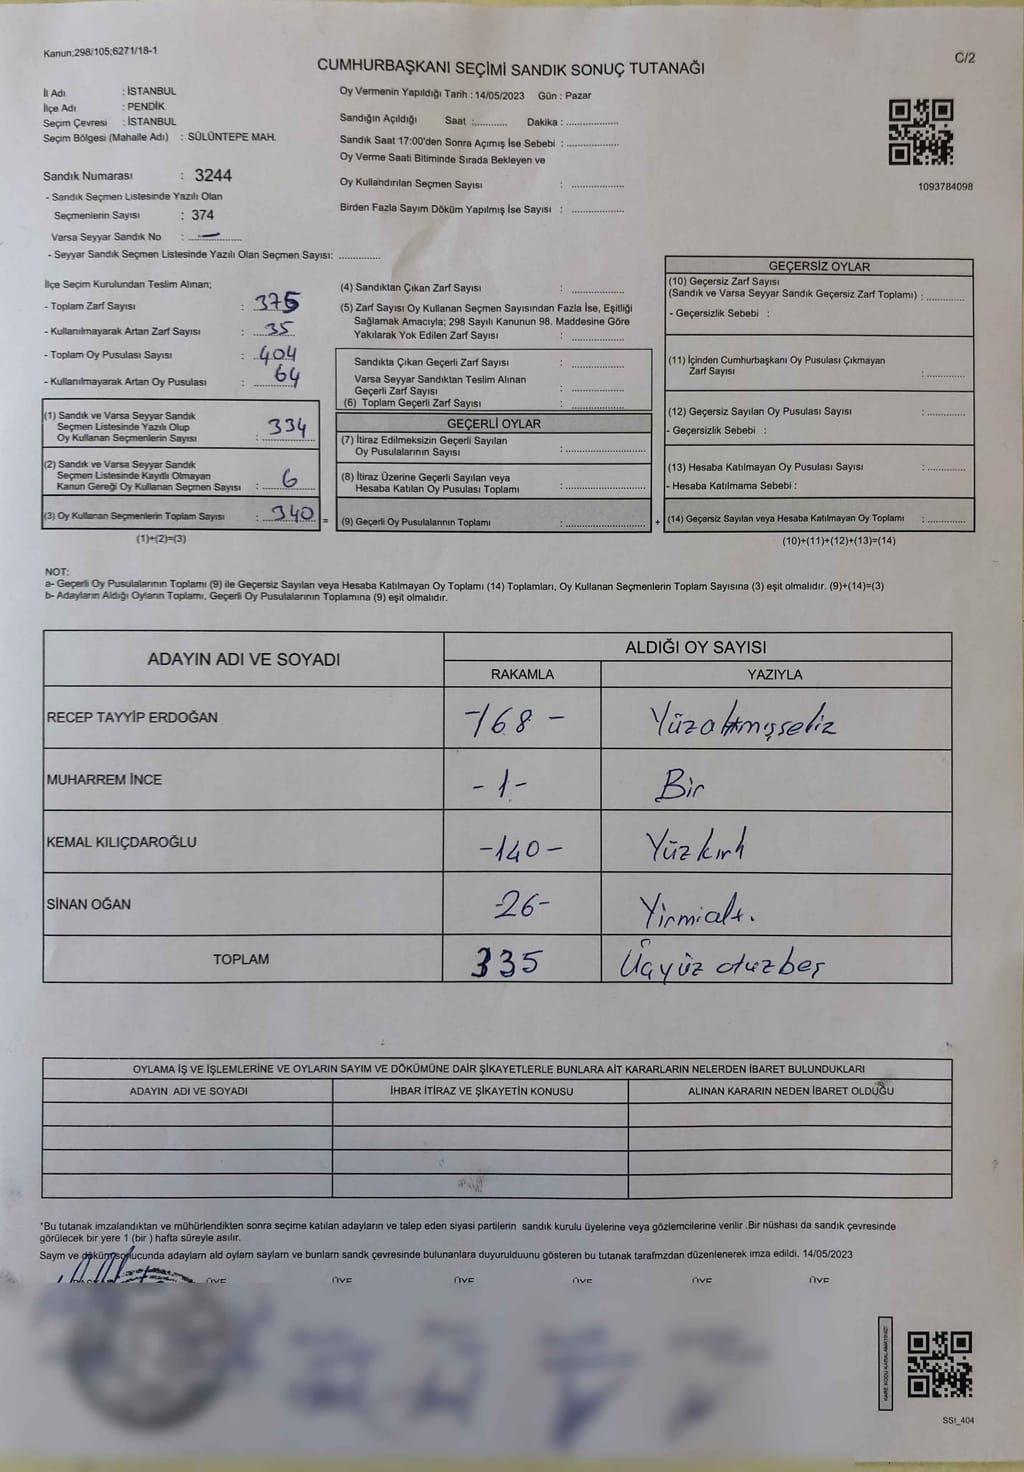 Kanun;298/105;6271/18-1
C/2
CUMHURBAŞKANI SEÇİMİ SANDIK SONUÇ TUTANAĞI
İl Adı : İSTANBUL
İlçe Adı : PENDİK
Seçim Çevresi : İSTANBUL
Seçim Bölgesi (Mahalle Adı) : SÜLÜNTEPE MAH.
Sandık Numarası : 3244
- Sandık Seçmen Listesinde Yazılı Olan
Seçmenlerin Sayısı : 374
Varsa Seyyar Sandık No : ..—..........
- Seyyar Sandık Seçmen Listesinde Yazılı Olan Seçmen Sayısı: .............
Oy Vermenin Yapıldığı Tarih : 14/05/2023 Gün : Pazar
Sandığın Açıldığı Saat :........... Dakika : ................
Sandık Saat 17:00'den Sonra Açımış İse Sebebi : ................
Oy Verme Saati Bitiminde Sırada Bekleyen ve
Oy Kullandırılan Seçmen Sayısı : ................
Birden Fazla Sayım Döküm Yapılmış İse Sayısı : ................
1093784098
İlçe Seçim Kurulundan Teslim Alınan;
- Toplam Zarf Sayısı : 375
- Kullanılmayarak Artan Zarf Sayısı : 35
- Toplam Oy Pusulası Sayısı : 404
- Kullanılmayarak Artan Oy Pusulası : 64
(1) Sandık ve Varsa Seyyar Sandık
Seçmen Listesinde Yazılı Olup
Oy Kullanan Seçmenlerin Sayısı : 334
(2) Sandık ve Varsa Seyyar Sandık
Seçmen Listesinde Kayıtlı Olmayan
Kanun Gereği Oy Kullanan Seçmen Sayısı : 6
(3) Oy Kullanan Seçmenlerin Toplam Sayısı : 340 =
(1)+(2)=(3)
(4) Sandıktan Çıkan Zarf Sayısı : ................
(5) Zarf Sayısı Oy Kullanan Seçmen Sayısından Fazla İse, Eşitliği
Sağlamak Amacıyla; 298 Sayılı Kanunun 98. Maddesine Göre
Yakılarak Yok Edilen Zarf Sayısı : ................
Sandıkta Çıkan Geçerli Zarf Sayısı : ................
Varsa Seyyar Sandıktan Teslim Alınan
Geçerli Zarf Sayısı : ................
(6) Toplam Geçerli Zarf Sayısı : ................
GEÇERLİ OYLAR
(7) İtiraz Edilmeksizin Geçerli Sayılan
Oy Pusulalarının Sayısı :........................
(8) İtiraz Üzerine Geçerli Sayılan veya
Hesaba Katılan Oy Pusulası Toplamı :........................
(9) Geçerli Oy Pusulalarının Toplamı :........................ +
GEÇERSİZ OYLAR
(10) Geçersiz Zarf Sayısı
(Sandık ve Varsa Seyyar Sandık Geçersiz Zarf Toplamı) : ............
- Geçersizlik Sebebi :
(11) İçinden Cumhurbaşkanı Oy Pusulası Çıkmayan
Zarf Sayısı : ............
(12) Geçersiz Sayılan Oy Pusulası Sayısı : ............
- Geçersizlik Sebebi :
(13) Hesaba Katılmayan Oy Pusulası Sayısı : ............
- Hesaba Katılmama Sebebi :
(14) Geçersiz Sayılan veya Hesaba Katılmayan Oy Toplamı : ............
(10)+(11)+(12)+(13)=(14)
NOT:
a- Geçerli Oy Pusulalarının Toplamı (9) ile Geçersiz Sayılan veya Hesaba Katılmayan Oy Toplamı (14) Toplamları, Oy Kullanan Seçmenlerin Toplam Sayısına (3) eşit olmalıdır. (9)+(14)=(3)
b- Adayların Aldığı Oyların Toplamı, Geçerli Oy Pusulalarının Toplamına (9) eşit olmalıdır.
ADAYIN ADI VE SOYADI
ALDIĞI OY SAYISI
RAKAMLA YAZIYLA
RECEP TAYYİP ERDOĞAN -168- Yüzaltmışsekiz
MUHARREM İNCE -1- Bir
KEMAL KILIÇDAROĞLU -140- Yüzkırk
SİNAN OĞAN -26- Yirmialtı.
TOPLAM 335 Üçyüz otuzbeş
OYLAMA İŞ VE İŞLEMLERİNE VE OYLARIN SAYIM VE DÖKÜMÜNE DAİR ŞİKAYETLERLE BUNLARA AİT KARARLARIN NELERDEN İBARET BULUNDUKLARI
ADAYIN ADI VE SOYADI İHBAR İTİRAZ VE ŞİKAYETİN KONUSU ALINAN KARARIN NEDEN İBARET OLDUĞU
*Bu tutanak imzalandıktan ve mühürlendikten sonra seçime katılan adayların ve talep eden siyasi partilerin sandık kurulu üyelerine veya gözlemcilerine verilir .Bir nüshası da sandık çevresinde
görülecek bir yere 1 (bir ) hafta süreyle asılır.
Saym ve döküm sonucunda adaylarn ald oylarn saylarn ve bunlarn sandk çevresinde bulunanlara duyurulduunu gösteren bu tutanak tarafmzdan düzenlenerek imza edildi. 14/05/2023
ÜYE ÜYE ÜYE ÜYE ÜYE ÜYE
KARE KODU KARALAMAYINIZ!
SSI_404